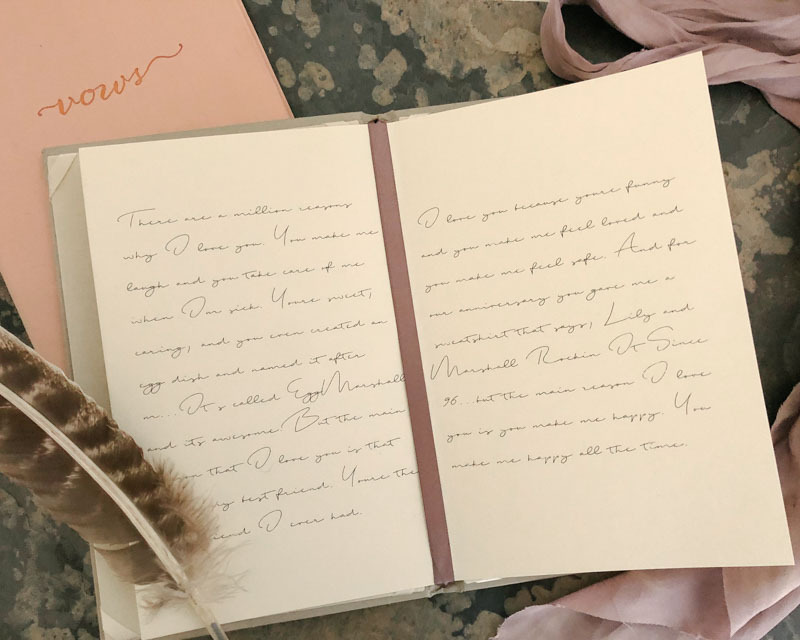 vows
There are a million reasons
why I love you. You make me
laugh and you take care of me
when Im sick. Youre sweet,
caring, and you even created an
egg dish and named it after
m...It s called EggMarshall
and its awesome.But the main
on that I love you is that
ry best friend. Youre the
iend I ever had.
I love you because youre funny
and you make me feel loved and
you make me feel safe. And for
our anniversary you gave me a
sweatshirt that says, Lily and
Marshall Rockin It Since
96...but the main reason I love
you is you make me happy. You
make me happy all the time.